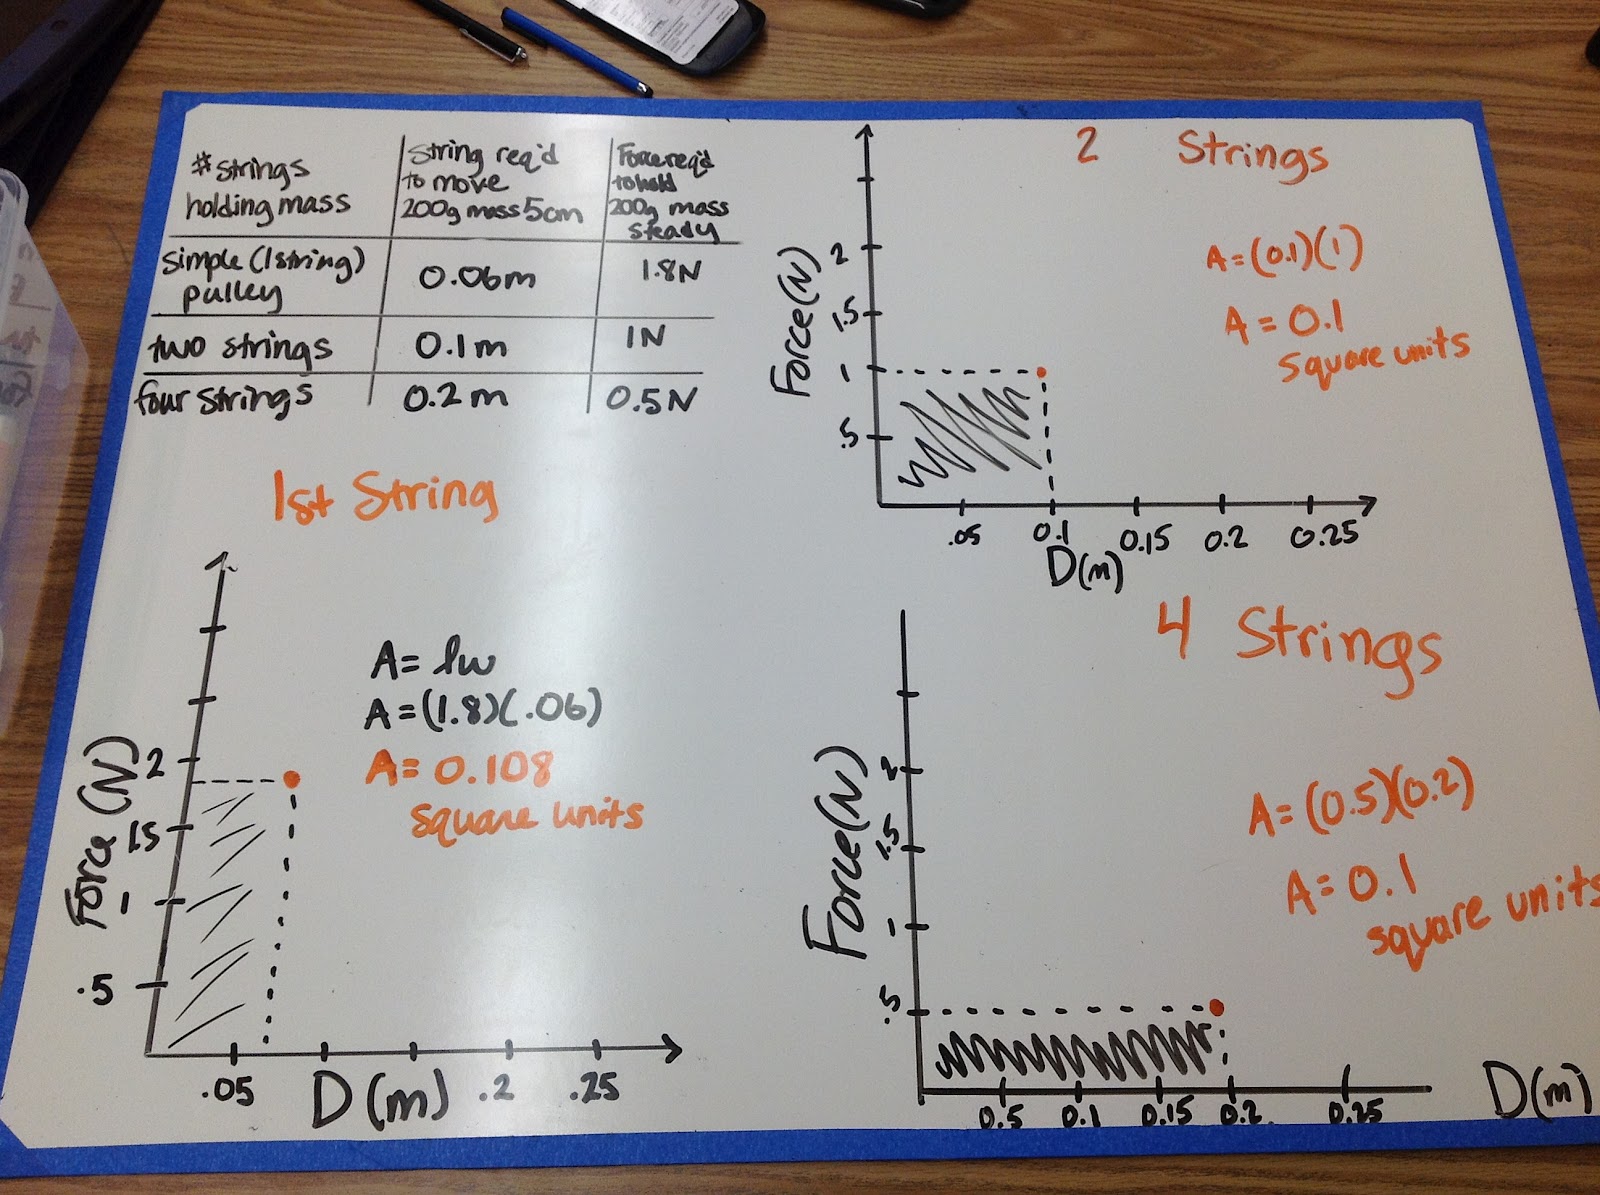 #strings
holding mass
String req'd
to move
200g mass 5cm
Force req'd
to hold
200g mass
steady
simple (1 string)
pulley
0.06m
1.8N
two strings
0.1m
1N
four strings
0.2m
0.5N
1st String
Force (N)
2
1.5
1
.5
.05
.2
.25
D(m)
A= lw
A=(1.8)(.06)
A= 0.108
square units
2 Strings
Force(N)
2
1.5
1
.5
.05
0.1
0.15
0.2
0.25
D(m)
A=(0.1)(1)
A = 0.1
square units
4 Strings
Force(N)
2
1.5
1
.5
0.5
0.1
0.15
0.2
0.25
D(m)
A=(0.5)(0.2)
A=0.1
square units